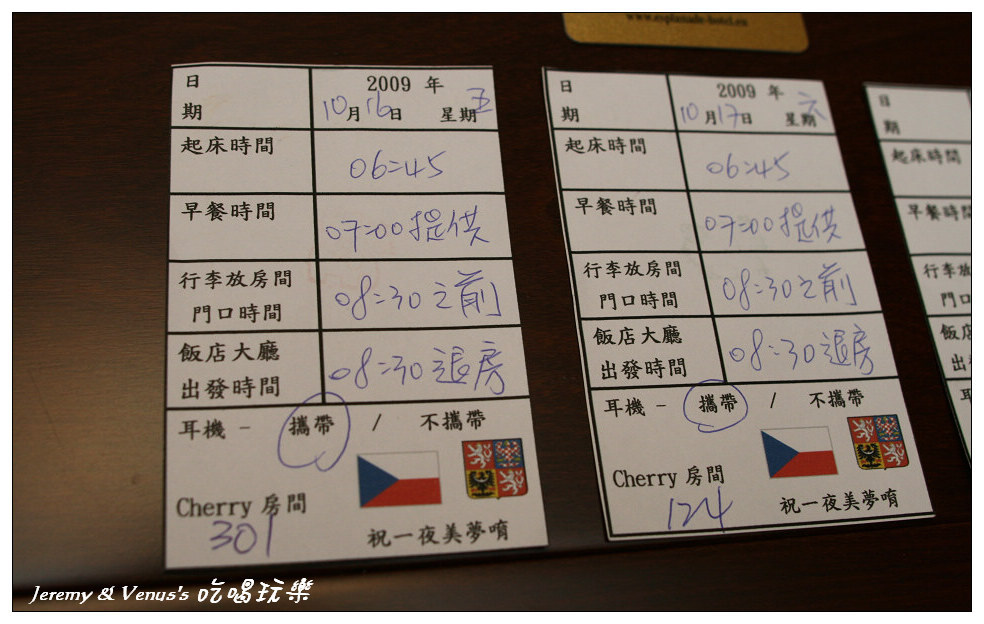 www.esplanade-hotel.eu
日期 2009 年
10月16日 星期五
起床時間 06:45
早餐時間 07:00提供
行李放房間
門口時間 08:30之前
飯店大廳
出發時間 08:30退房
耳機 - 攜帶 / 不攜帶
Cherry 房間
301
祝一夜美夢唷
日期 2009 年
10月17日 星期六
起床時間 06:45
早餐時間 07:00提供
行李放房間
門口時間 08:30之前
飯店大廳
出發時間 08:30退房
耳機 - 攜帶 / 不攜帶
Cherry 房間
124
祝一夜美夢唷
日
期
起床時間
早餐時間
行李放
門口
飯店
出發
耳
Jeremy & Venus's 吃喝玩樂